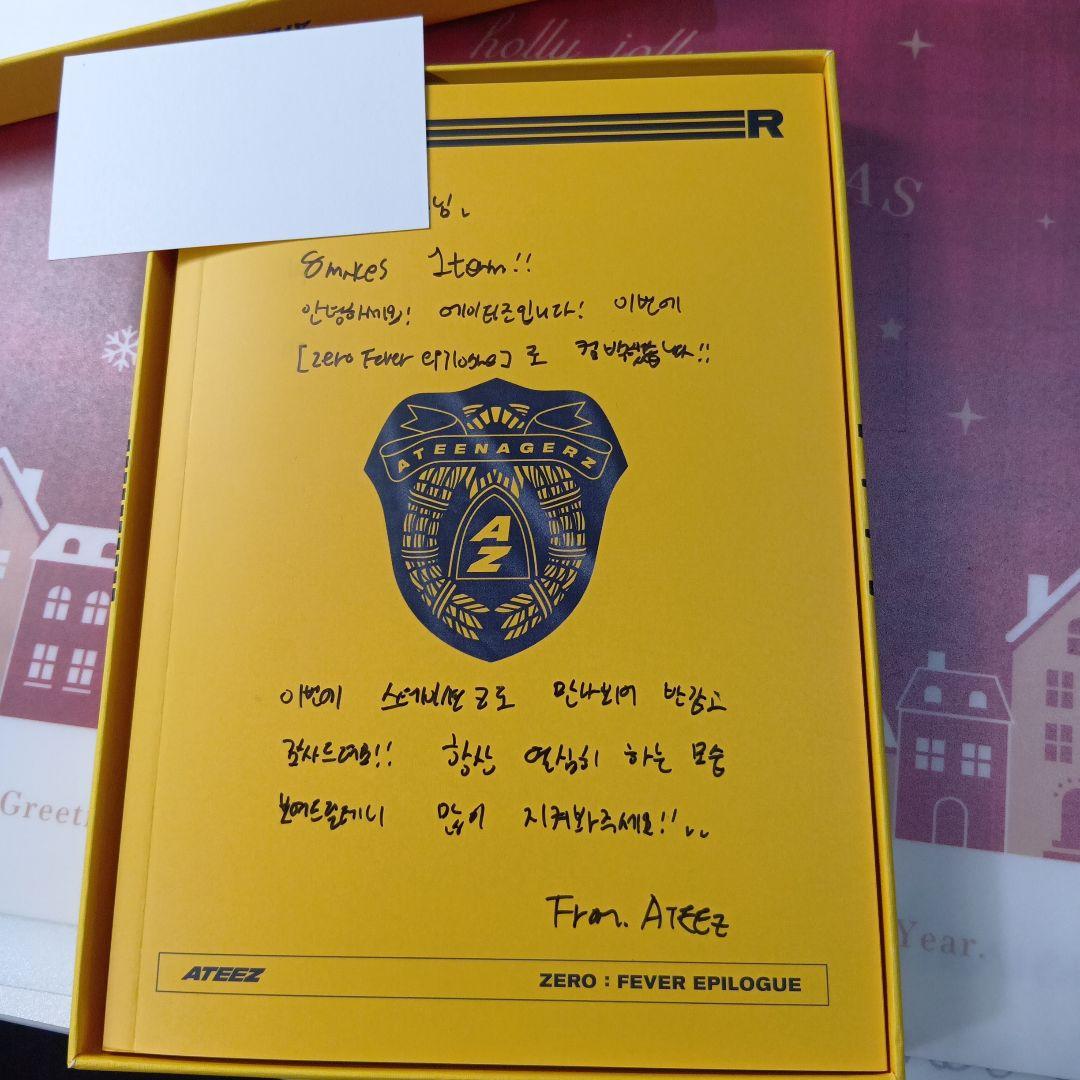 holly jolly
R
님.
8 makes 1 team!!
안녕하세요! 에이티즈입니다! 이번에
[Zero Fever epilogue]로 컴백했습니다!!
AS
ATEENAGERZ
AZ
이번에 로 만나뵈어 반갑고
감사드려요!! 항상 열심히 하는 모습
보여드릴테니 많이 지켜봐주세요!!..
From. ATEEZ
Year.
ATEEZ
ZERO : FEVER EPILOGUE